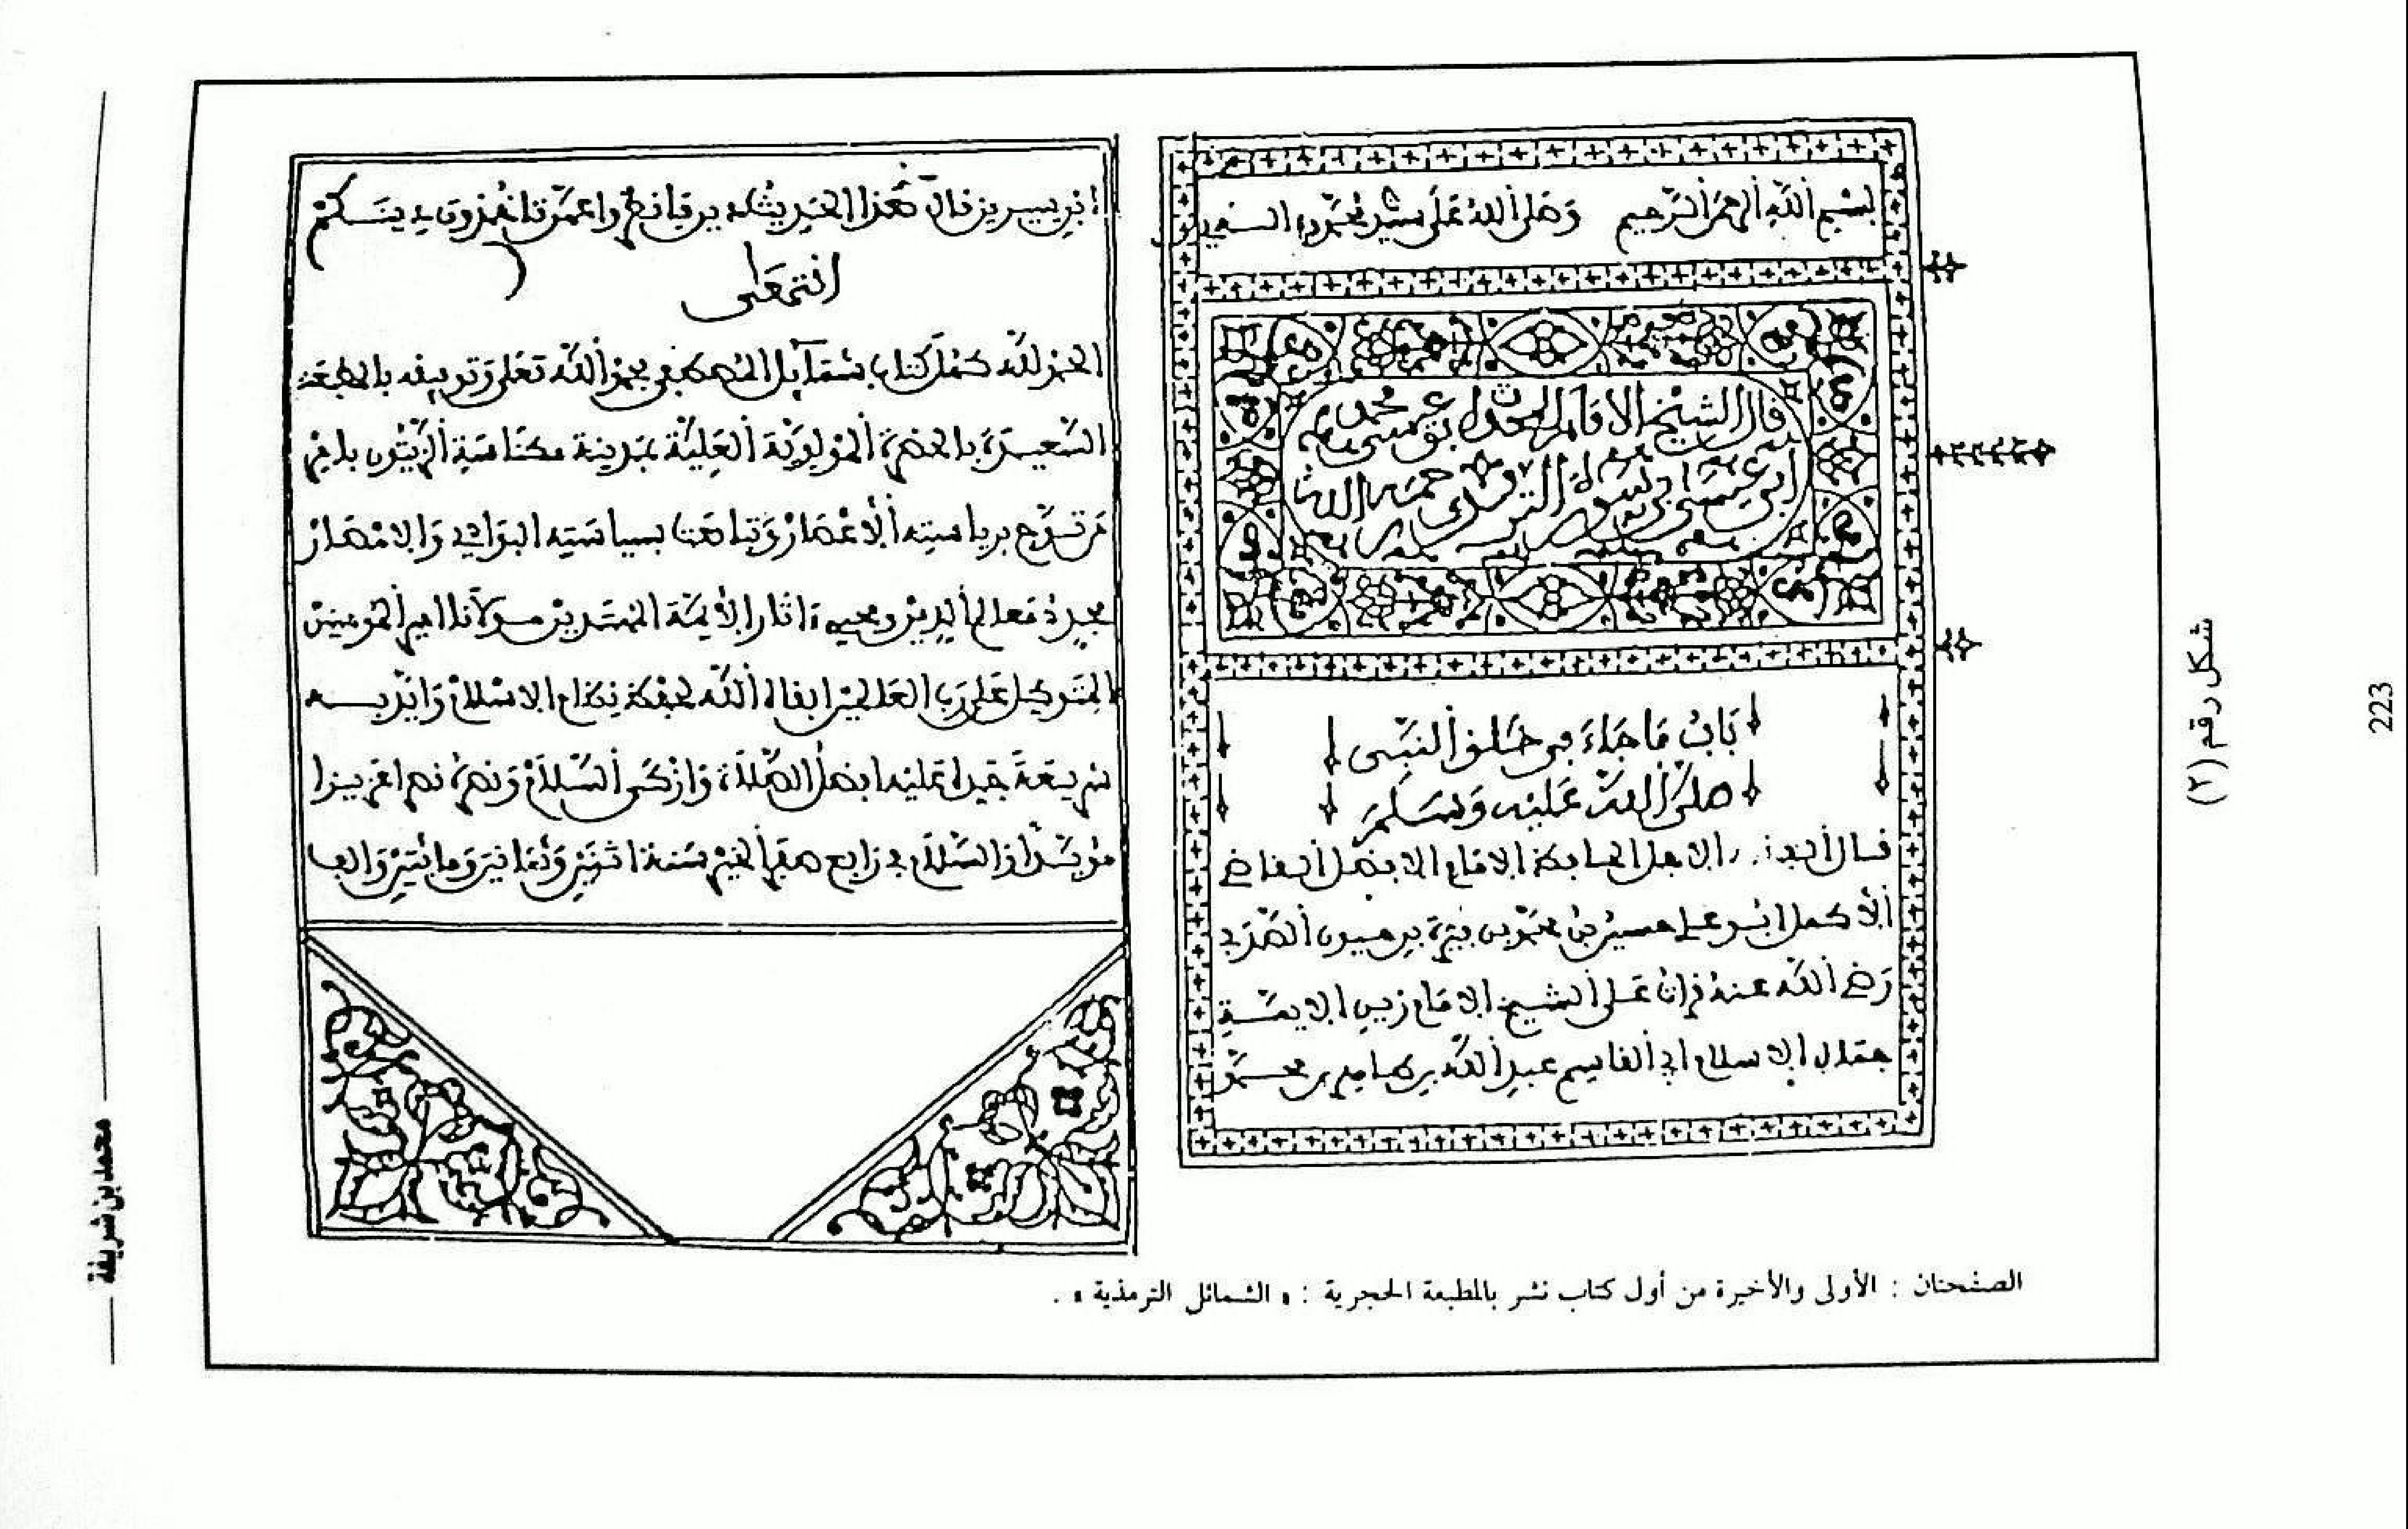 بسم الله الرحمن الرحيم وصلى الله على سيدنا محمد
قال الشيخ الامام المحدث ابو عيسى محمد بن
عيسى بن سورة الترمذي رحمه الله
باب ما جاء في خلق النبي
صلى الله عليه وسلم
قال الاجل الحافظ الامام الافضل
الأكمل ابو علي حسين بن محمد بن فيرة بن حيون الصدفي
رضي الله عنه قرات على الشيخ الامام زين الايمة
جمال الاسلام ابي القاسم عبد الله بن طاهر بن محمد
ابن سيرين قال هذا الحديث دين فانظروا عمن تاخذون دينكم
انتهى
الحمد لله كمل كتاب شمايل المصطفى بحمد الله تعلى وتوفيقه بالمطبعة
السعيدة بالحضرة المولوية العلية بمدينة مكناسة الزيتون بامر
من تتوج برياسته الأعصار وتباهت بسياسته البوادي والامصار
مجدد معالم الدين ومحيي ءاثار الأيمة المهتدين مولانا امير المومنين
المتوكل على رب العلمين ابقى الله لحفظه نظام الاسلام وايد به
شريعة جده عليه افضل الصلاة وازكى السلام ونصره نصرا عزيزا
والسلام في رابع صفر الخير سنة اثنين وثمانين ومايتين والف
الصفحتان : الأولى والأخيرة من أول كتاب نشر بالمطبعة الحجرية : « الشمائل الترمذية » .
شكل رقم (٢)
223
محمد بن شريفة